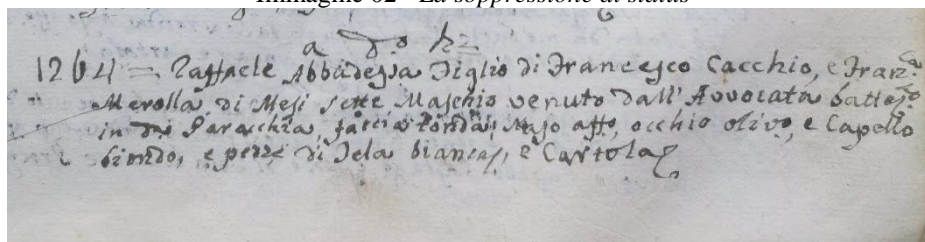 Immagine 62 - La soppressione di status
a Do h2
1264 = Raffaele Abbadessa Figlio di Francesco Cacchio, e Fran.ca
Merolla di Mesi sette Maschio venuto dall'Avvocata battez.o
in da Paracchia, faccia tonda, Naso aff.o, occhio olivo, e Capello
biondo, e pezze di Tela bianca, e Cartola